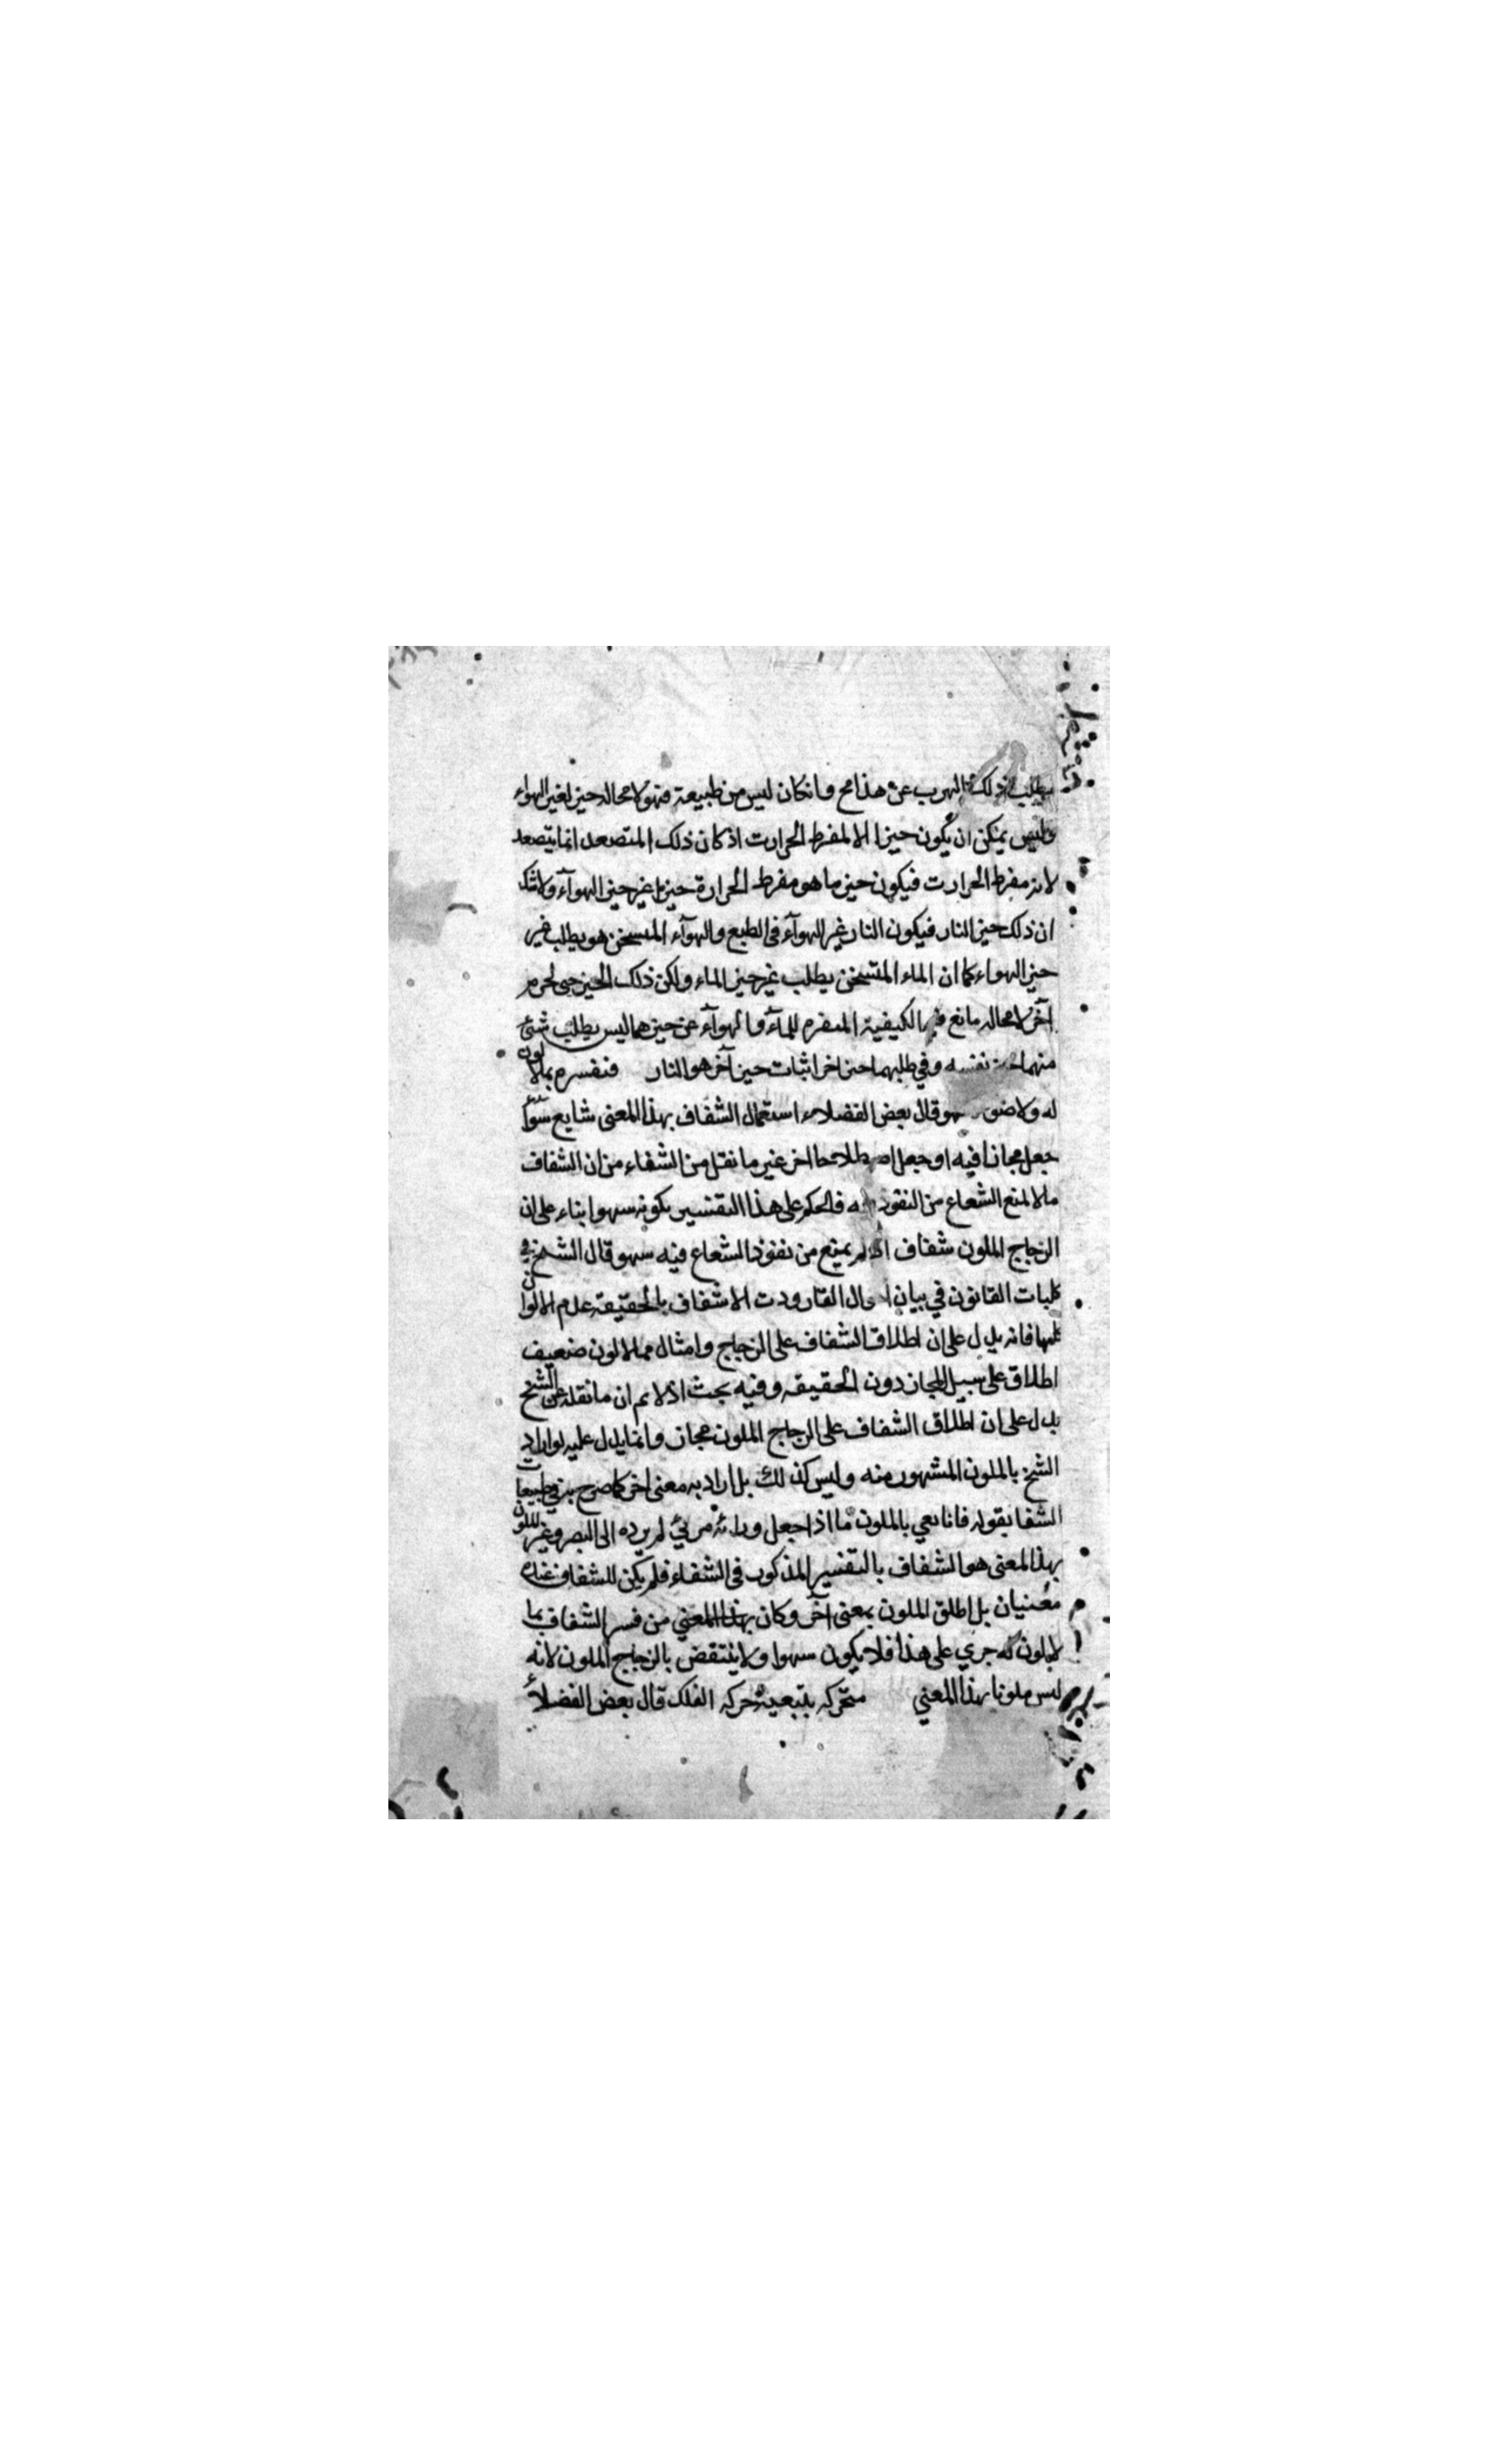 يطلب ذلك الهرب عن هذا مح وانكان ليس من طبيعة فهو لا محاله حيز لغير الهواء
وليس يمكن ان يكون حيزا الا لمفرط الحرارت اذ كان ذلك المتصعد انما يتصعد
لانه مفرط الحرارت فيكون حيز ما هو مفرط الحرارة حيزا غير حيز الهوآء ولا شك
ان ذلك حيز النار فيكون النار غير الهوآء فى الطبع والهوآء المسخن هو يطلب غير
حيز الهواء كما ان الماء المتسخن يطلب غير حيز الماء ولكن ذلك الحيز حيز لجرم
آخر لا محاله مانع فيه بالكيفية المنفره للمآء والهوآء عن حيزهما ليس يطلب شئ
منهما نفسه وفي طلبهما حيزا اخر اثبات حيز آخر هو النار فنفسره بما لا لون
له ولا ضوء قال بعض الفضلاء استعمال الشفاف بهذا المعنى شايع سوآء
جعل مجازا فيه او جعل اصطلاحا اخر غير ما نقل من الشفاء من ان الشفاف
ما لا يمنع الشعاع من النفوذ فيه فالحكم على هذا التفسير بكونه سهوا بناء على ان
الزجاج الملون شفاف اذ لم يمنع من نفوذ الشعاع فيه سهو قال الشيخ في
كليات القانون في بيان احوال القارورت الاشفاف بالحقيقه عدم الالوان
كلها فانه يدل على ان اطلاق الشفاف على الزجاج وامثال مما لا لون ضعيف
اطلاق على سبيل المجاز دون الحقيقه وفيه بحث اذ لا نم ان ما نقله عن الشيخ
يدل على ان اطلاق الشفاف على الزجاج الملون مجاز وانما يدل عليه لو اراد
الشيخ بالملون المشهور منه وليس كذلك بل اراد به معنى اخر كما صرح به في طبيعات
الشفا بقوله فانا نعي بالملون ما اذا جعل ورائه مرئي لم يرده الى البصر وغير الملون
بهذا المعنى هو الشفاف بالتفسير المذكور فى الشفاء فلم يكن للشفاف عنده
معنيان بل اطلق الملون بمعنى آخر وكان بهذا المعني من فسر الشفاف بما
لا لون له جري على هذا فلا يكون سهوا ولا ينتقض بالزجاج الملون لانه
ليس ملونا بهذا المعني متحركه بتبعية حركه الفلك قال بعض الفضلاء